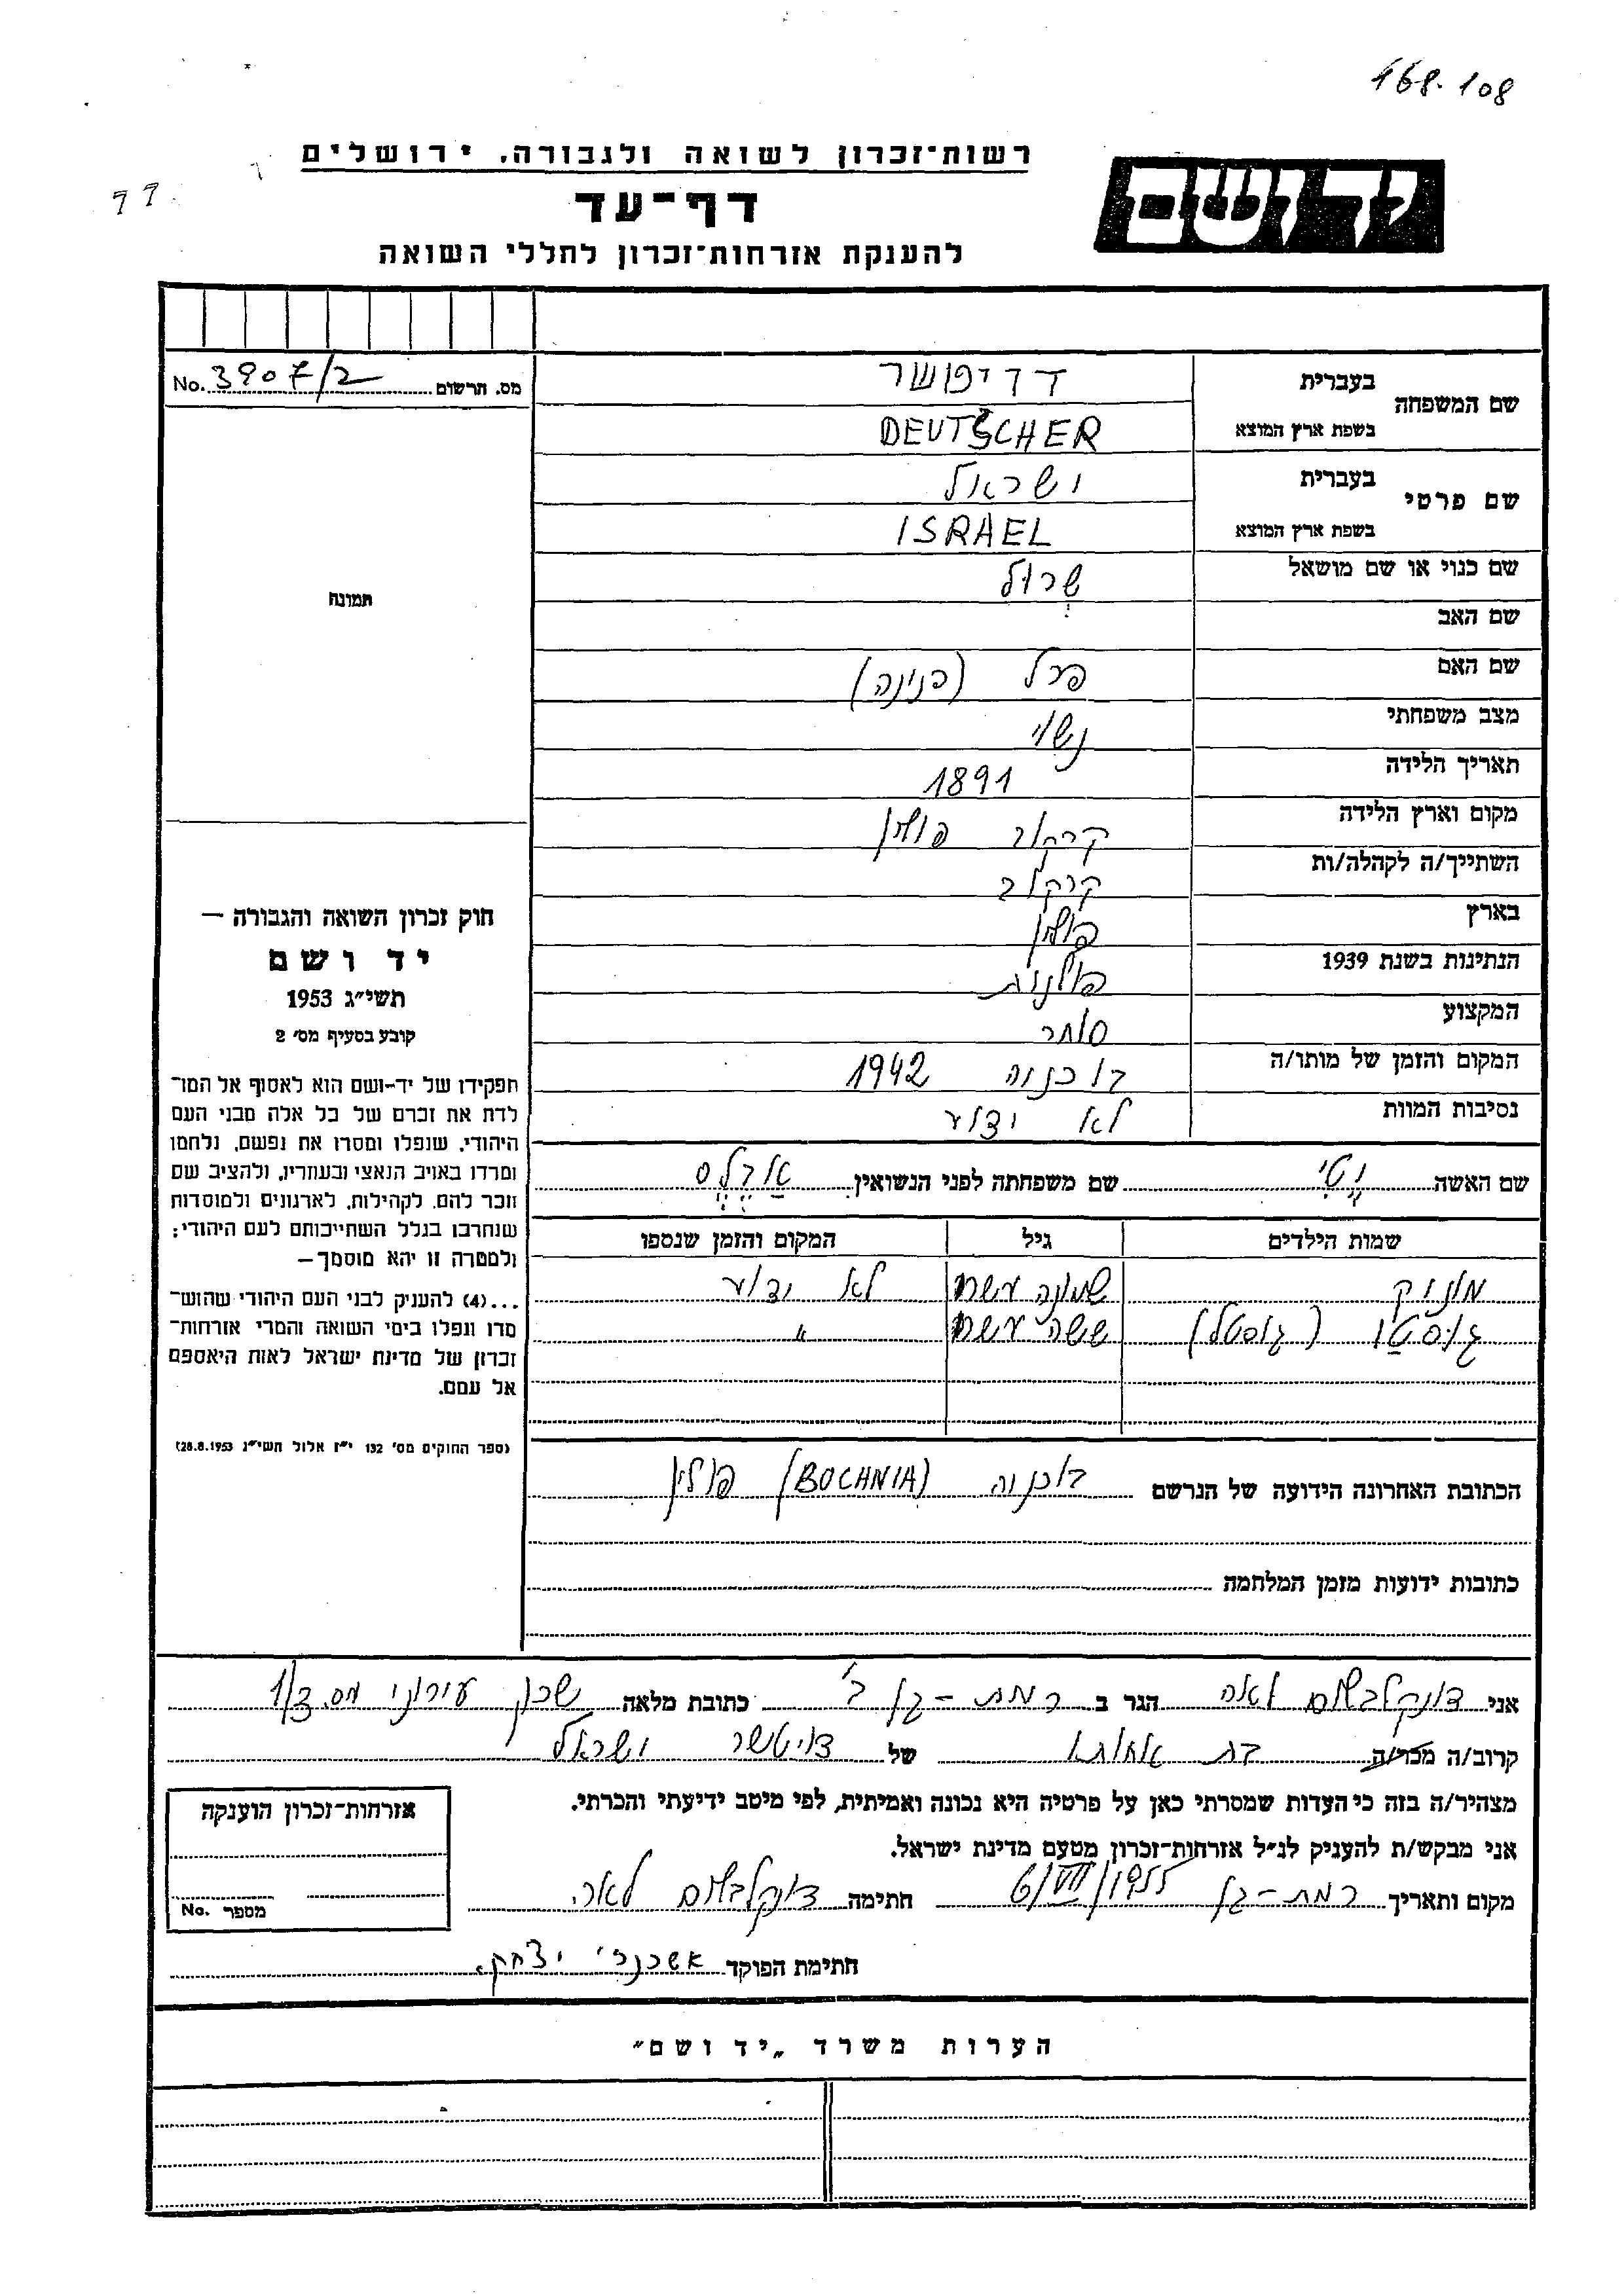 168.108
רשות־זכרון לשואה ולגבורה, ירושלים
יד ושם
דף־עד
77
להענקת אזרחות־זכרון לחללי השואה
מס. תרשום No. 3907/2
שם המשפחה
בעברית דויטשר
בשפת ארץ המוצא DEUTSCHER
שם פרטי
בעברית ישראל
בשפת ארץ המוצא ISRAEL
שם כנוי או שם מושאל שרול
שם האב
שם האם פרל (פנינה)
מצב משפחתי נשוי
תאריך הלידה 1891
מקום וארץ הלידה קרקוב פולין
השתייך/ה לקהלה/ות קרקוב
בארץ פולין
הנתינות בשנת 1939 פולנית
המקצוע סוחר
המקום והזמן של מותו/ה בוכניה 1942
נסיבות המוות לא ידוע
שם האשה נטי שם משפחתה לפני הנשואין אדלס
שמות הילדים גיל המקום והזמן שנספו
מוניק שמונה עשרה לא ידוע
גוסטה (גוסטל) ששה עשרה "
הכתובת האחרונה הידועה של הנרשם בוכניה (BOCHNIA) פולין
כתובות ידועות מזמן המלחמה
תמונה
חוק זכרון השואה והגבורה —
יד ושם
תשי״ג 1953
קובע בסעיף מס׳ 2
תפקידו של יד-ושם הוא לאסוף אל המו־
לדת את זכרם של כל אלה מבני העם
היהודי, שנפלו ומסרו את נפשם, נלחמו
ומרדו באויב הנאצי ובעוזריו, ולהציב שם
וזכר להם, לקהילות, לארגונים ולמוסדות
שנחרבו בגלל השתייכותם לעם היהודי;
ולמטרה זו יהא מוסמך—
...(4) להעניק לבני העם היהודי שהוש־
מדו ונפלו בימי השואה והמרי אזרחות־
זכרון של מדינת ישראל לאות היאספם
אל עמם.
(ספר החוקים מס׳ 132 י״ז אלול תשי״ג 28.8.1953)
אני דונקלבלום לאה הגר ב רמת-גן ב' כתובת מלאה שכון עירוני מס. 1/3
קרוב/ה מכר/ה בת אחותו של דויטשר ישראל
מצהיר/ה בזה כי העדות שמסרתי כאן על פרטיה היא נכונה ואמיתית, לפי מיטב ידיעתי והכרתי.
אני מבקש/ת להעניק לנ״ל אזרחות־זכרון מטעם מדינת ישראל.
מקום ותאריך רמת-גן 6/VII/1955 חתימה דונקלבלום לאה
חתימת הפוקד אשכנזי יצחק
אזרחות־זכרון הוענקה
מספר No.
הערות משרד „יד ושם״